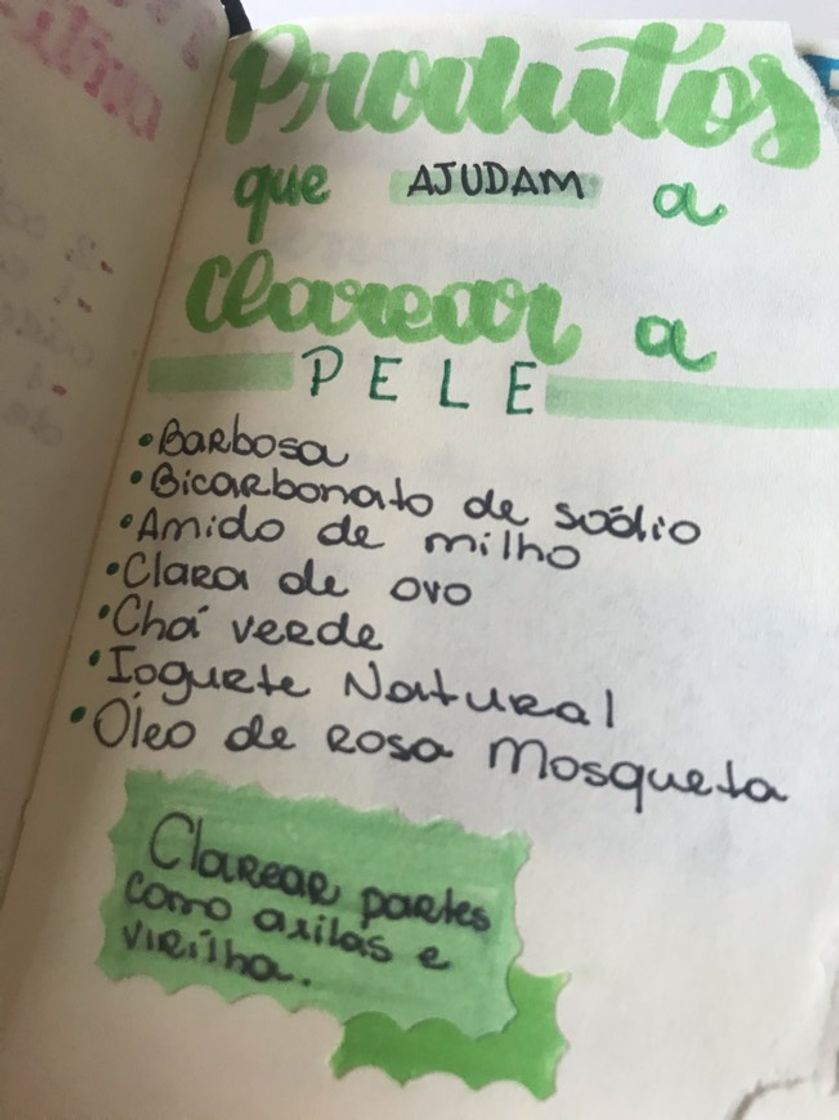 Produtos
que AJUDAM a
Clarear a
PELE
•Barbosa
•Bicarbonato de soólio
•Amido de milho
•Clara de ovo
•Chá verde
•Iogurte Natural
•Óleo de rosa Mosqueta
Clarear partes
como axilas e
virilha.